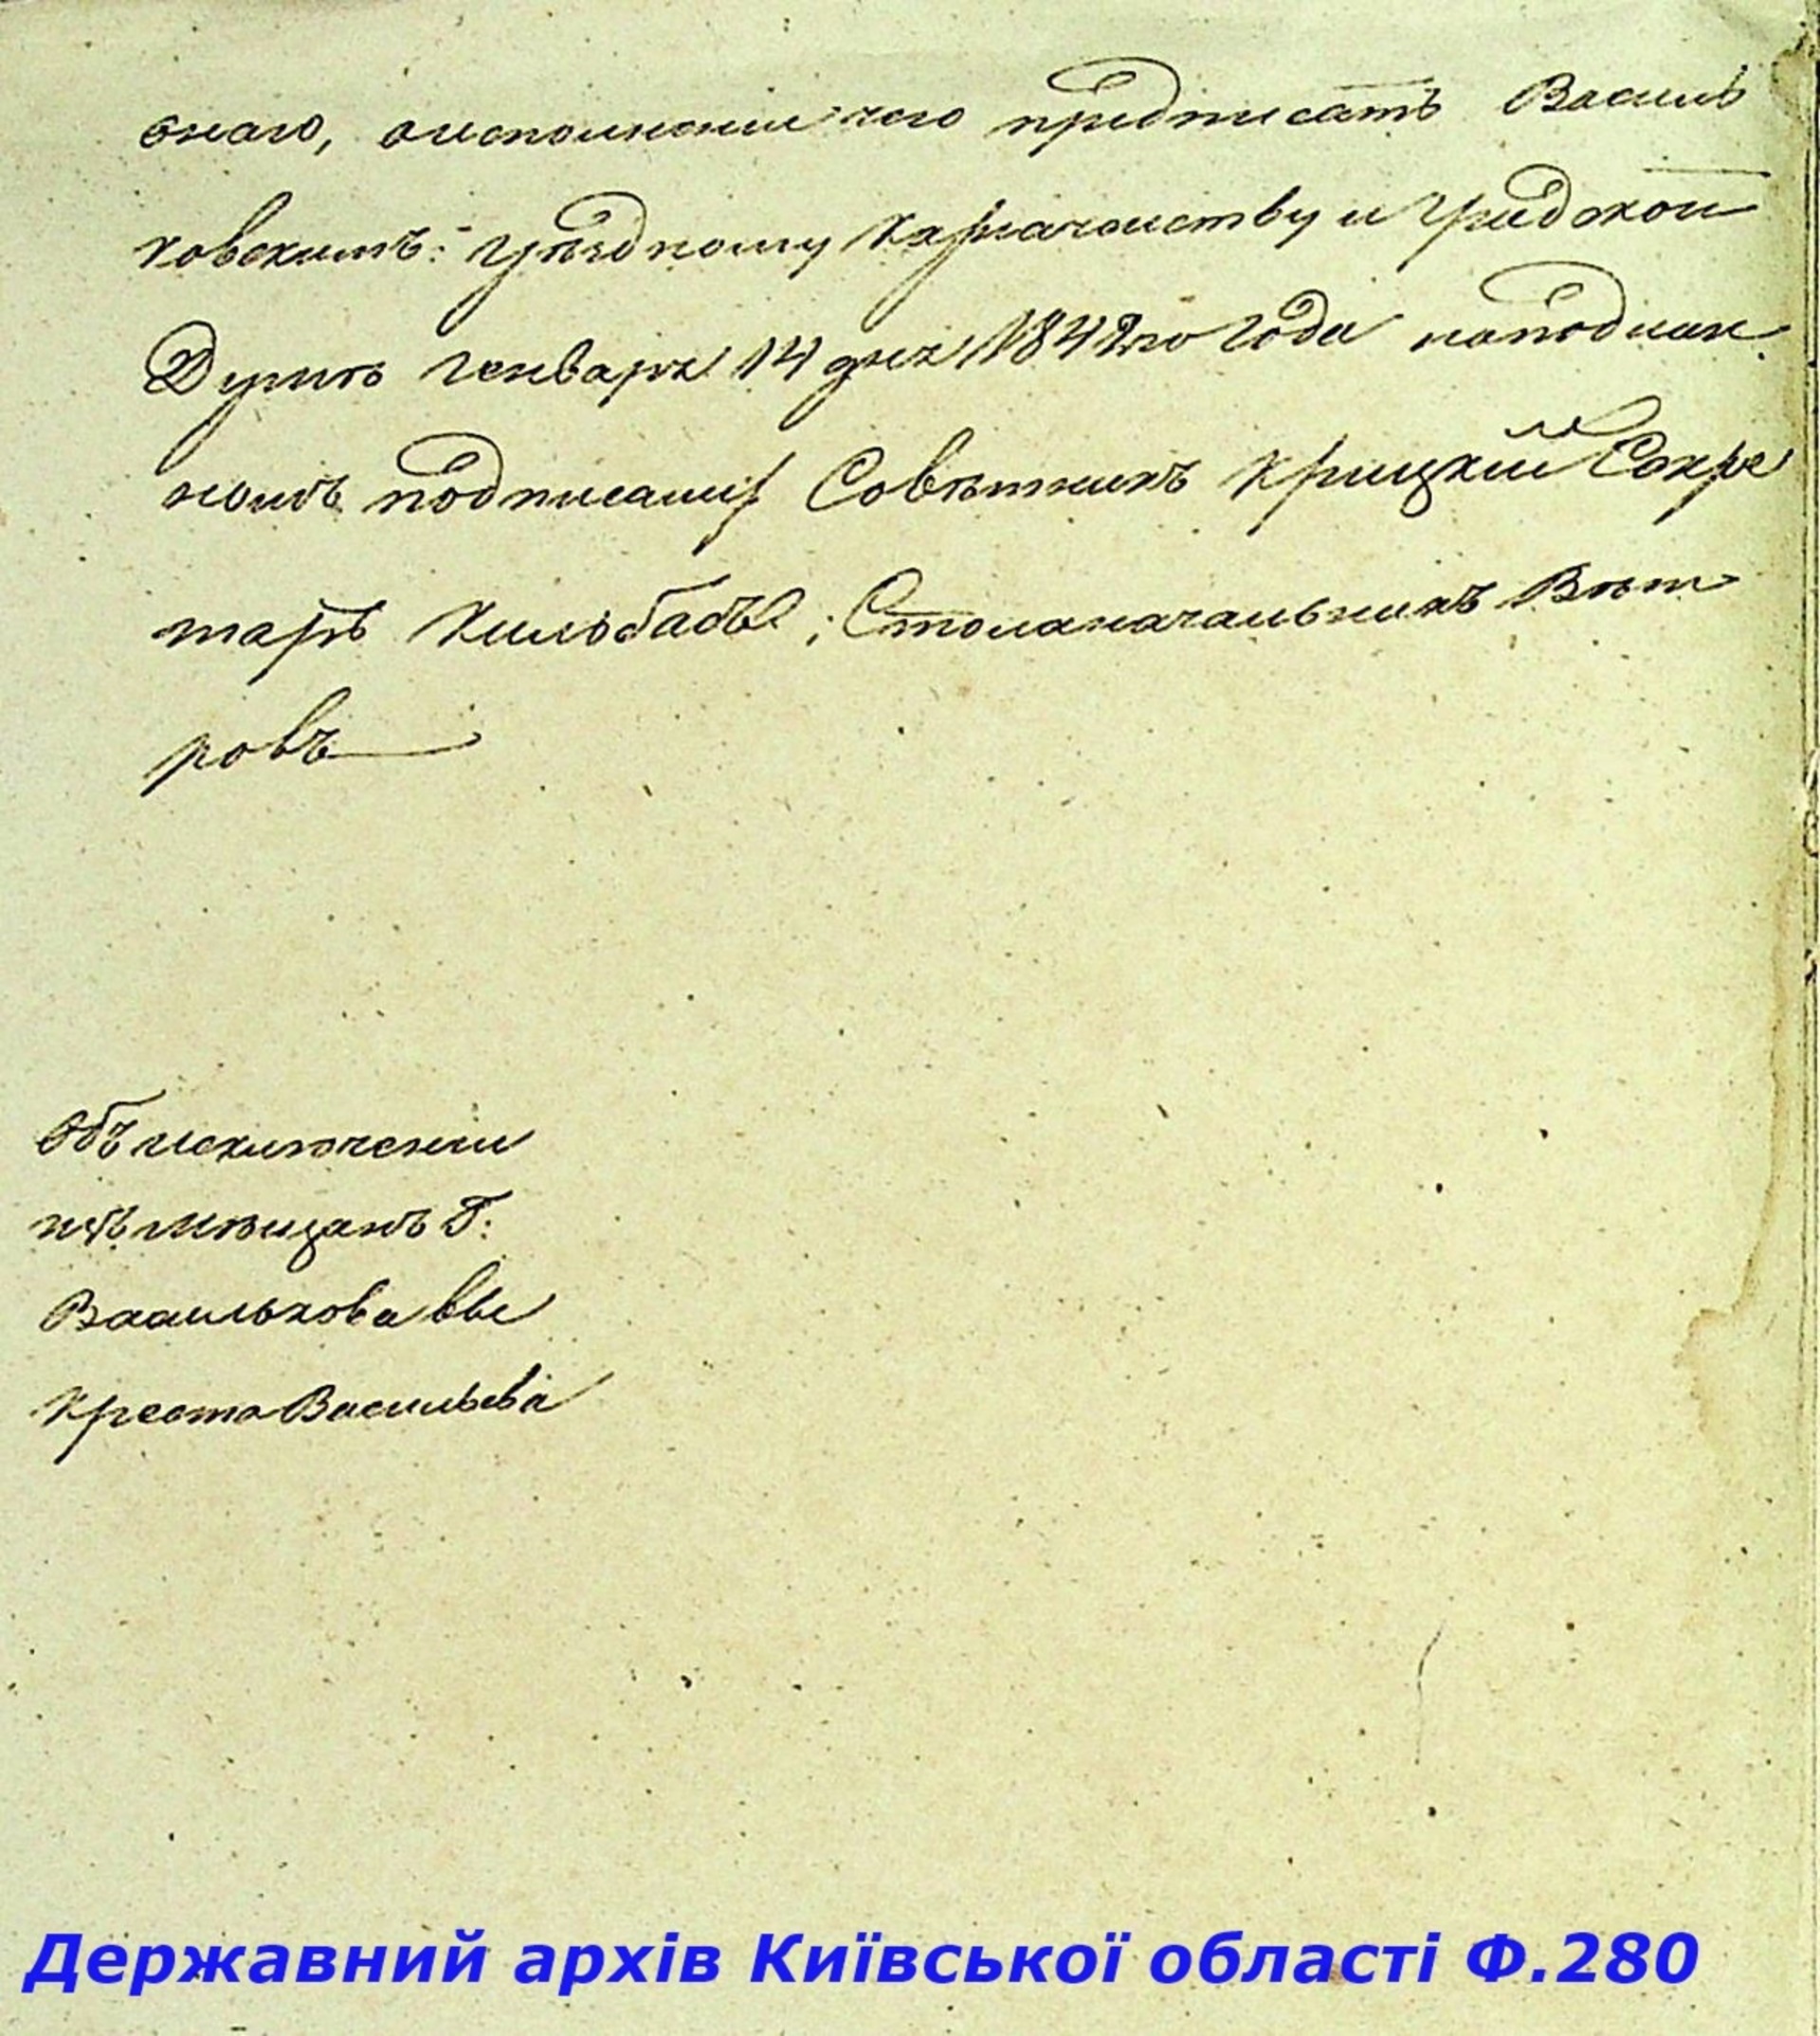 онаго, о исполнении чего предписать Василь
ковскимъ: Уѣздному Казначейству и Градской
Думѣ Генваря 14 дня 1842го Года на подлин
номъ подписали Совѣтникъ Крицкій Секре
тарь Кильбасъ; Столоначальникъ Вѣт
ровъ
Объ исключении
изъ Мѣщанъ Г:
Василькова вые
Креста Васильева
Державний архів Київської області Ф.280